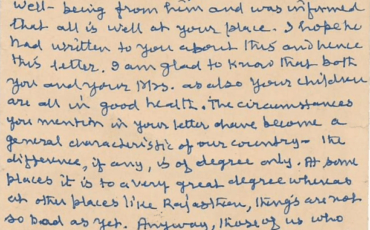 well-being from him and was informed
that all is well at your place. I hope he
had written to you about this and hence
this letter. I am glad to know that both
you and your Mrs. as also your children
are all in good health. The circumstances
you mention in your letter have become a
general characteristic of our country - the
difference, if any, is of degree only. At some
places it is to a very great degree whereas
at other places like Rajasthan, things are not
so bad as yet. Anyway, those of us who